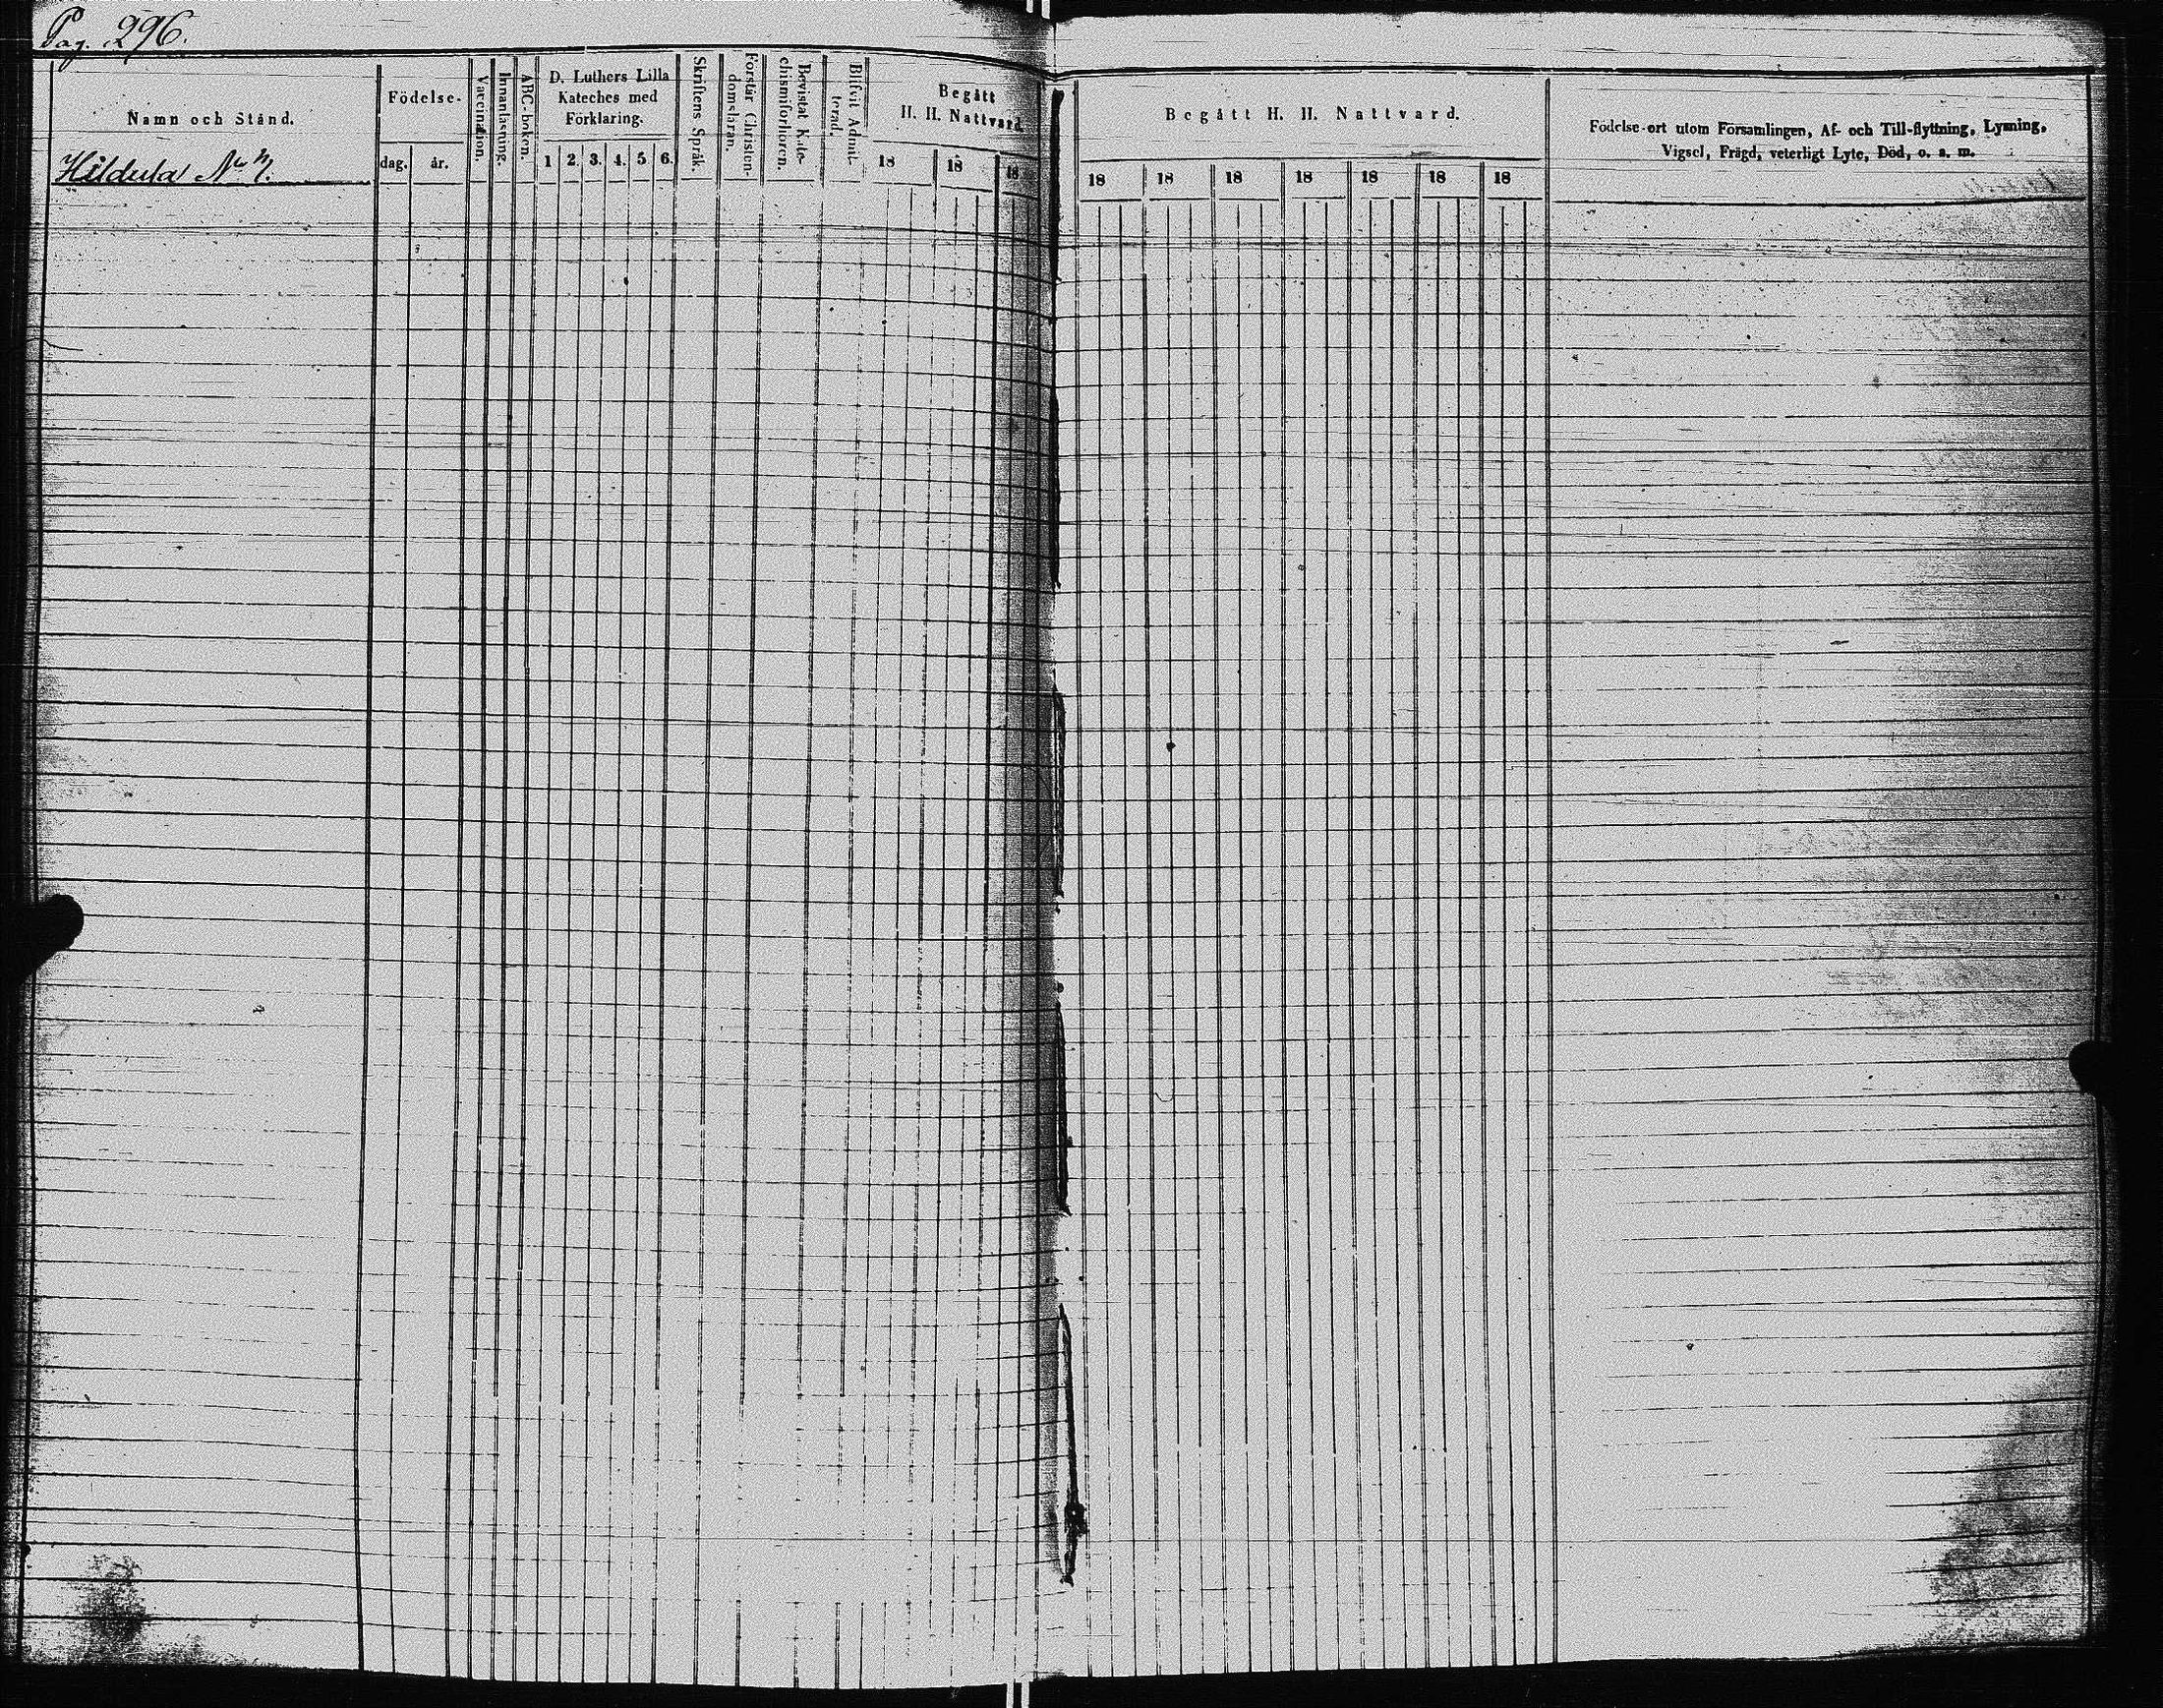 Pag. 296.
Namn och Stånd.
Hildula No
Födelse-
dag. år.
Vaccination.
Innanläsning.
ABC-boken.
D. Luthers Lilla
Kateches med
Förklaring.
1 2. 3. 4. 5 6.
Skriftens Språk.
Förstår Christen-
domsläran.
Bevistat Kate-
chismiförhören.
Blifvit Admit-
terad.
Begått
H. H. Nattvard.
18 18 18
Begått H. H. Nattvard.
18 18 18 18 18 18 18
Födelse-ort utom Församlingen, Af- och Till-flyttning, Lysning,
Vigsel, Frägd, veterligt Lyte, Död, o. s. m.